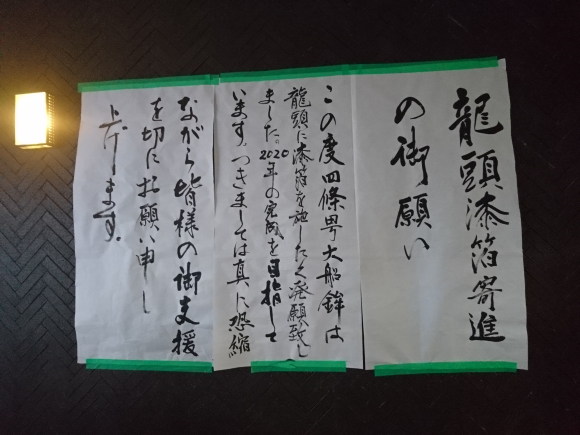 龍頭漆箔寄進
の御願い
この度四條町大船鉾は
龍頭に漆箔を施したく発願致し
ました。2020年の完成を目指して
います。つきましては真に恐縮
ながら皆様の御支援
を切にお願い申し
上げします。